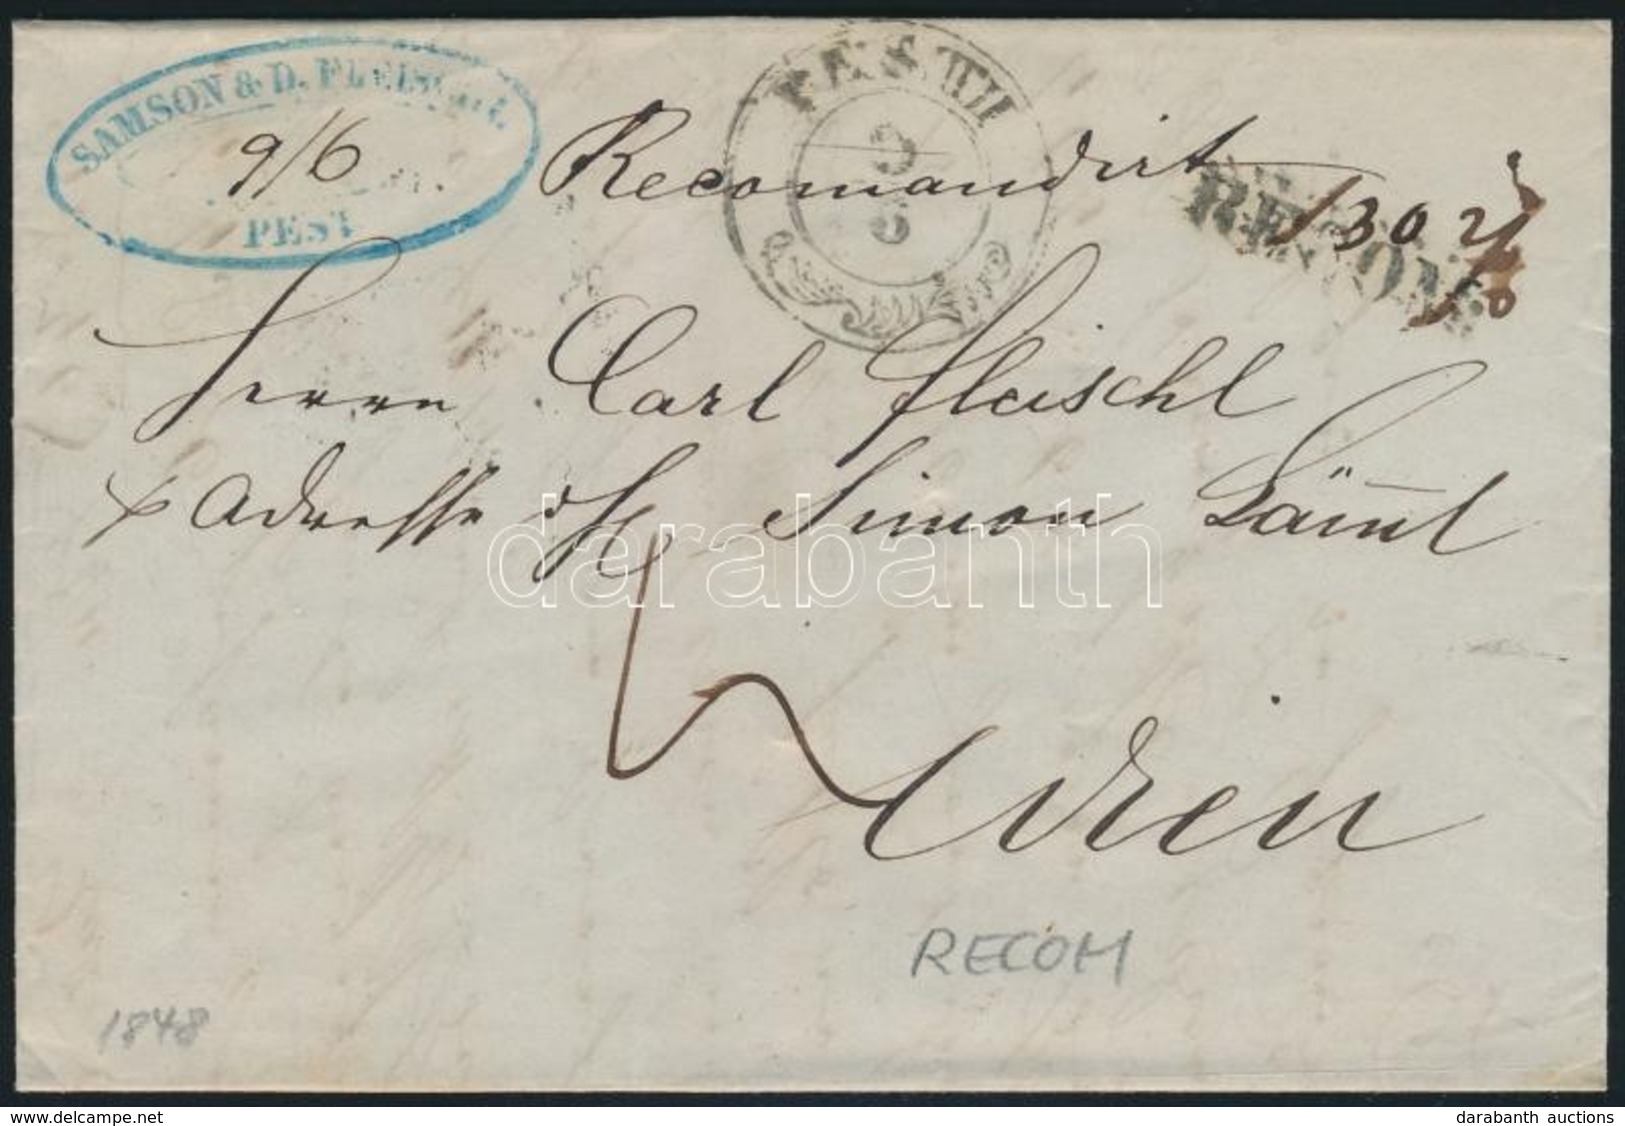 SAMSON & D. FLEISCHL
PEST
9/6
Recomandirt
PESTH
9
6
RECOM
1302
Herrn Carl Fleischl
p Adresse d H Simon Lämel
Wien
RECOM
1848
darabanth
© darabanth auctions
darabanth auctions